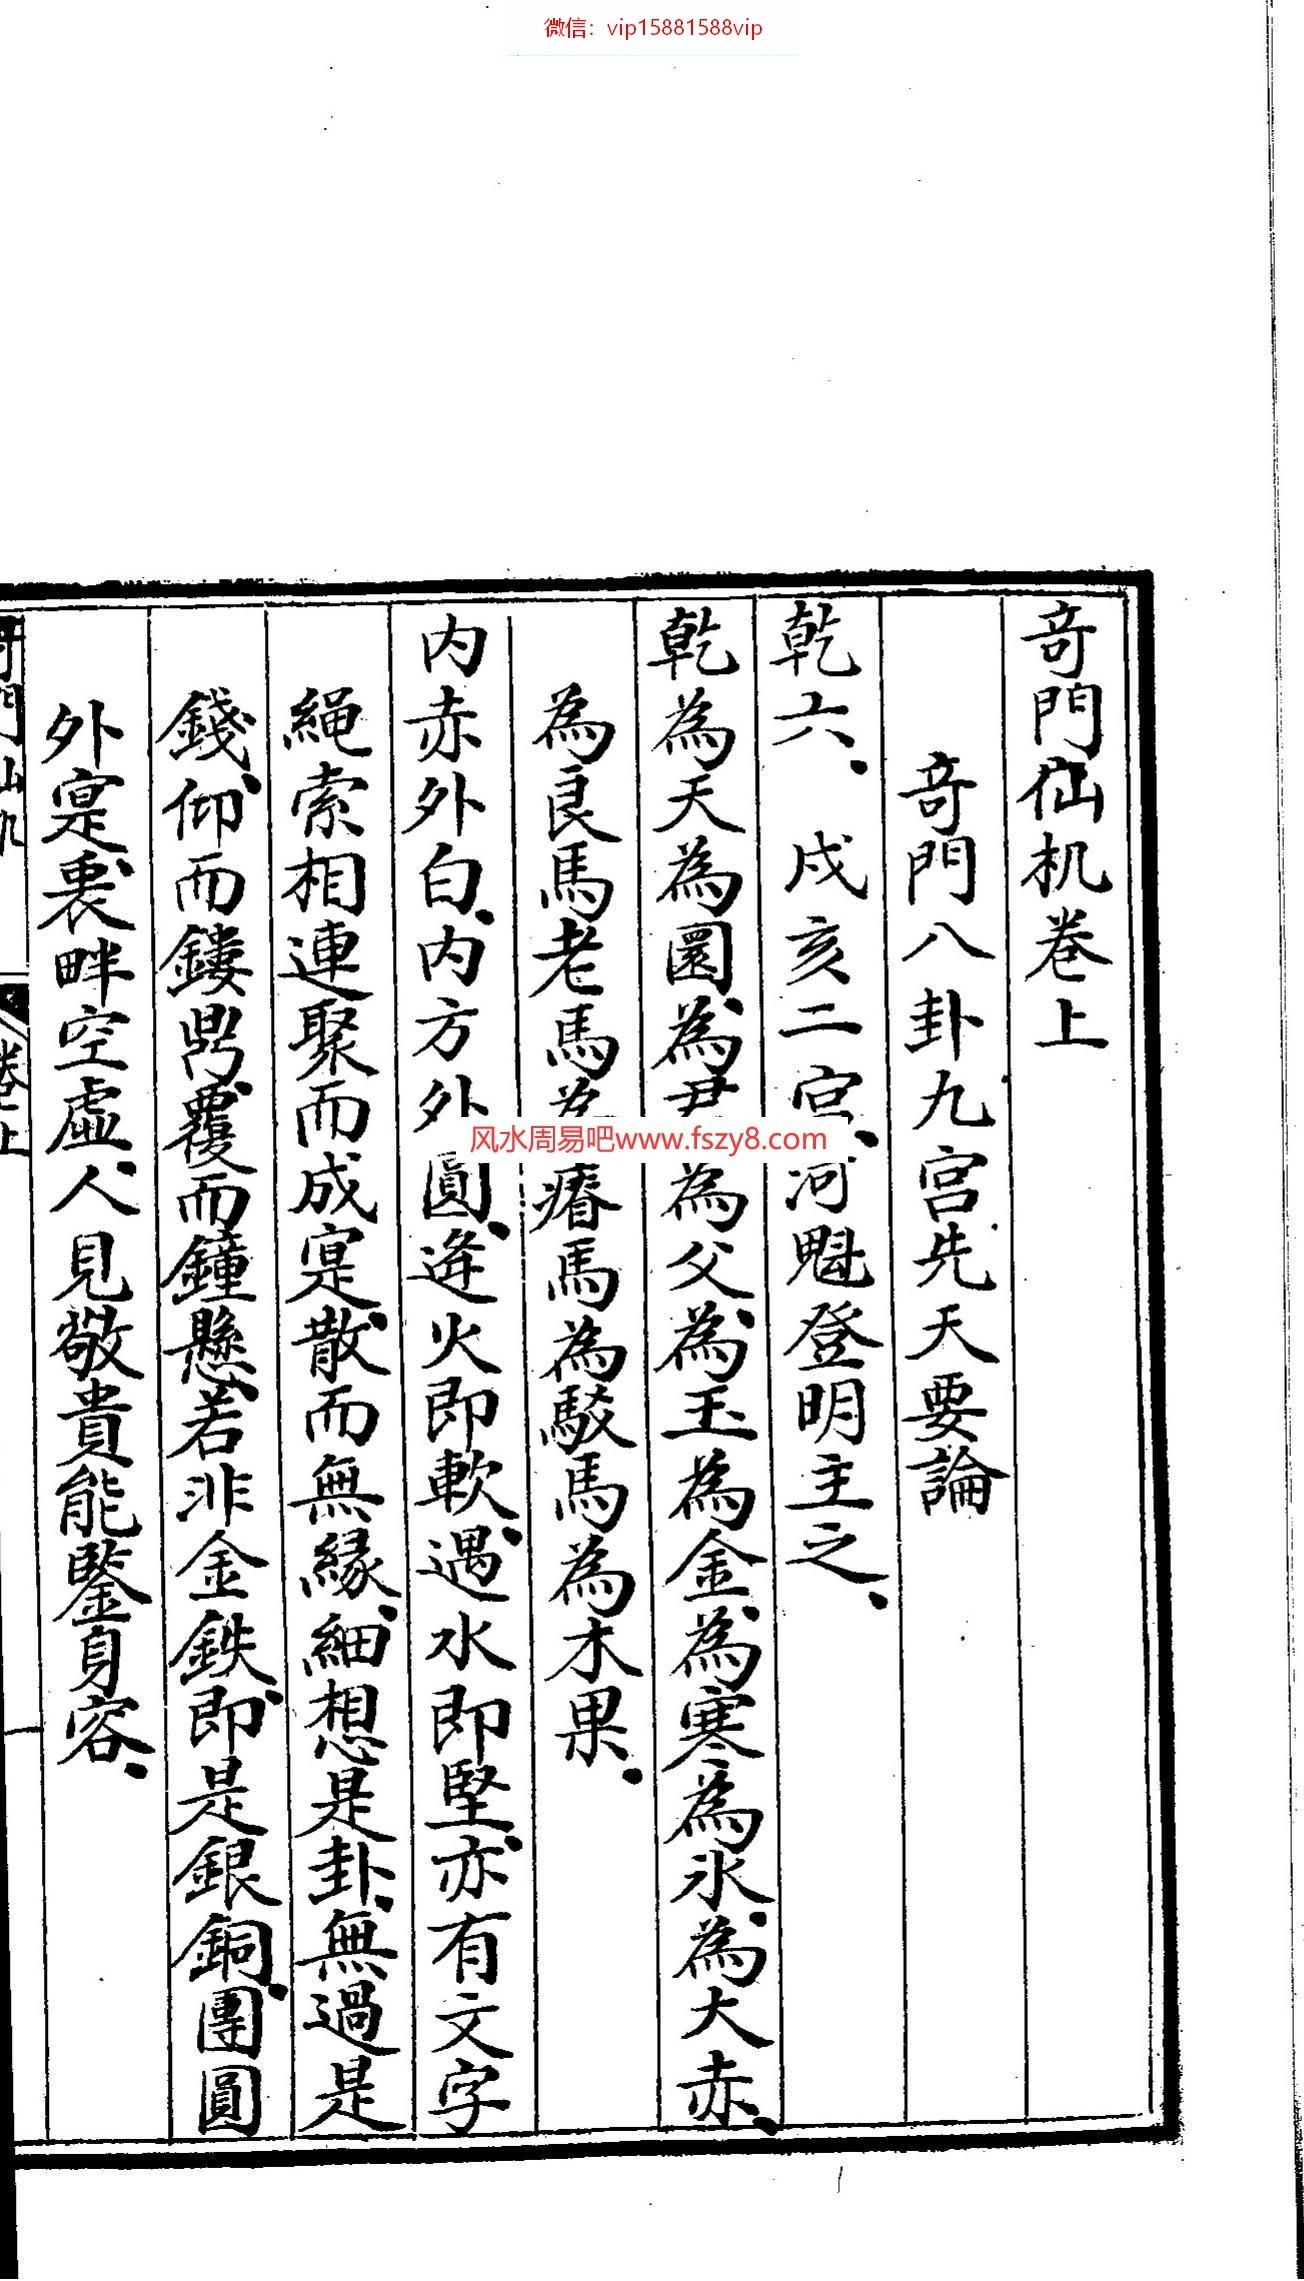 微信：vip15881588vip
奇門仙机卷上
奇門八卦九宮先天要論
乾六、戌亥二宮、河魁登明主之、
乾為天為圜、為君為父、為玉為金、為寒為氷、為大赤、
為良馬老馬為瘠馬為駁馬為木果、
内赤外白、内方外圓、逢火即軟、遇水即堅、亦有文字
繩索相連聚而成寔、散而無縁、細想是卦、無過是
錢、仰而鏤鼎、覆而鐘懸、若非金鉄、即是銀銅、團圓
外寔裏、畔空虛、人見敬貴能鑒身容、
风水周易吧www.fszy8.com
奇門仙机
卷上
一